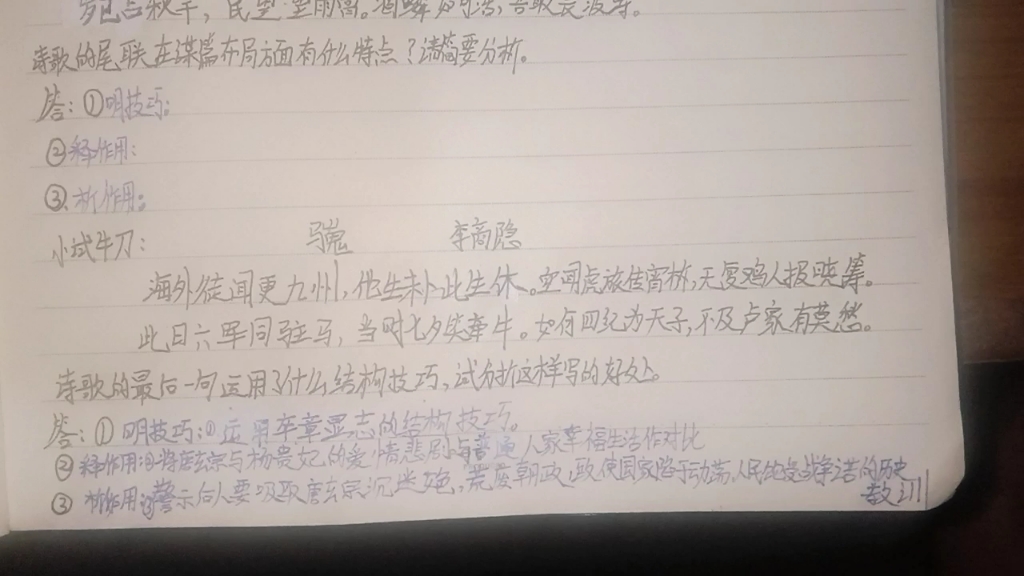 诗歌的尾联在谋篇布局方面有什么特点？请简要分析。
答：①明技巧：
②释作用：
③析作用：
小试牛刀： 马嵬 李商隐
海外徒闻更九州，他生未卜此生休。空闻虎旅传宵柝，无复鸡人报晓筹。
此日六军同驻马，当时七夕笑牵牛。如何四纪为天子，不及卢家有莫愁。
诗歌的最后一句运用了什么结构技巧，试分析这样写的好处。
答：①明技巧：①运用卒章显志的结构技巧。
②释作用：②将唐玄宗与杨贵妃的爱情悲剧与普通人家幸福生活作对比
③析作用：③警示后人要吸取唐玄宗沉迷 荒废朝政，致使国家陷于动荡，人民饱受战争 的历史
教训